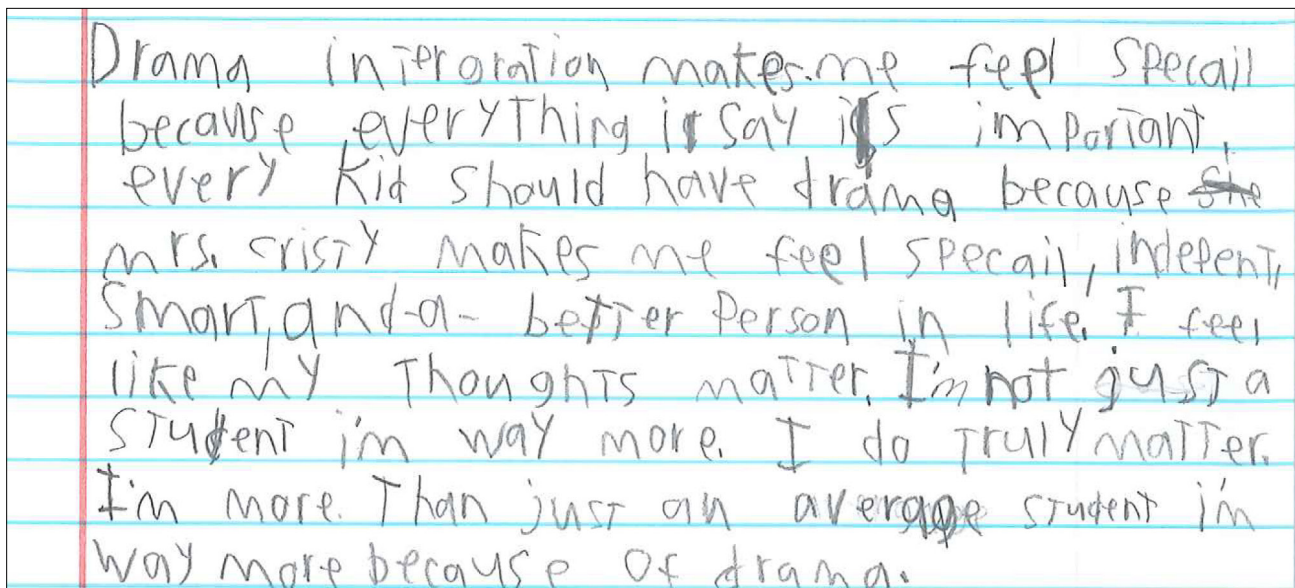 Drama intergration makes me feel specail
because everything i say is important.
every kid should have drama because she
mrs. cristy makes me feel specail, indepent,
smart, and-a- better person in life. I feel
like my thoughts matter. I'm not just a
student i'm way more. I do truly matter.
I'm more. Than just an average student i'm
way more because of drama.